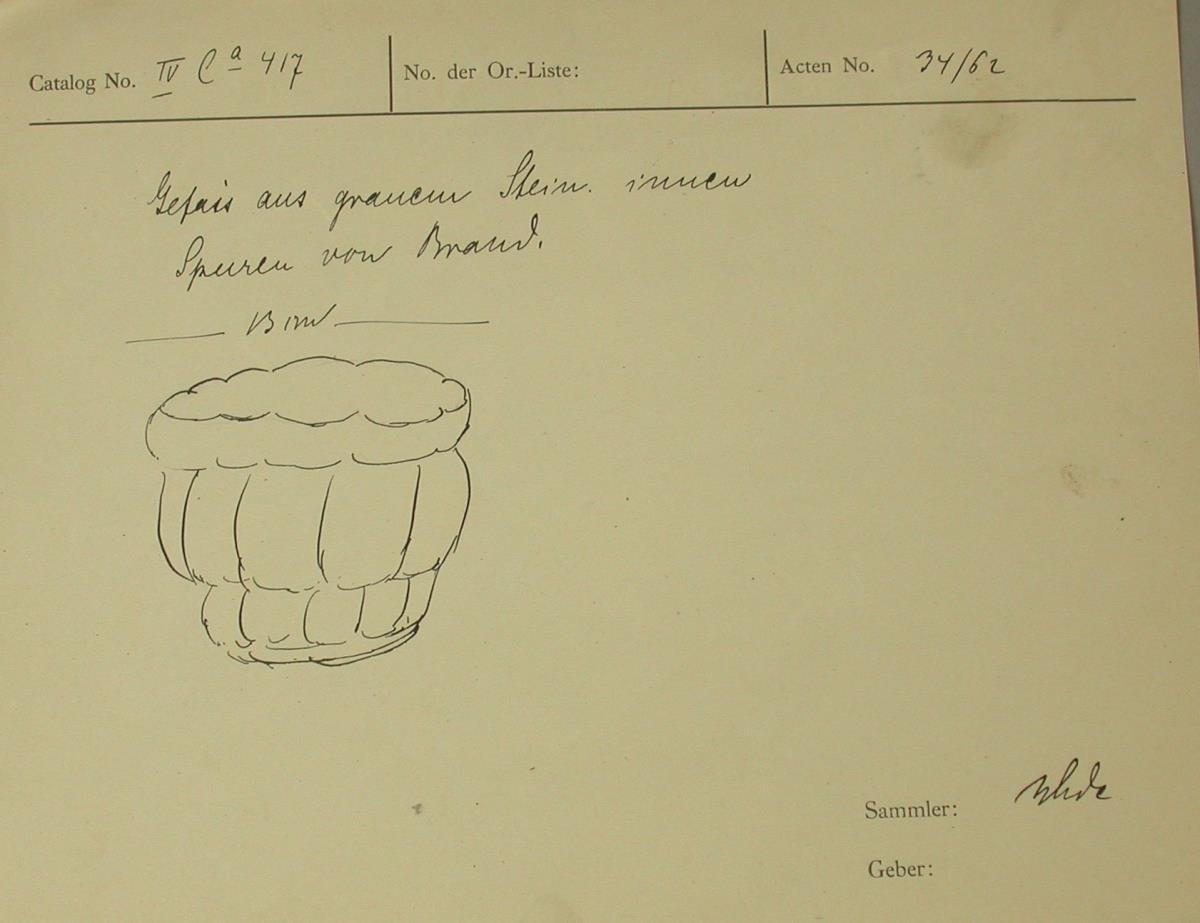 Catalog No. IV Ca 417
No. der Or.-Liste:
Acten No. 34/62
Gefäss aus grauem Stein. innen
Spuren von Brand.
Sammler: Uhde
Geber: